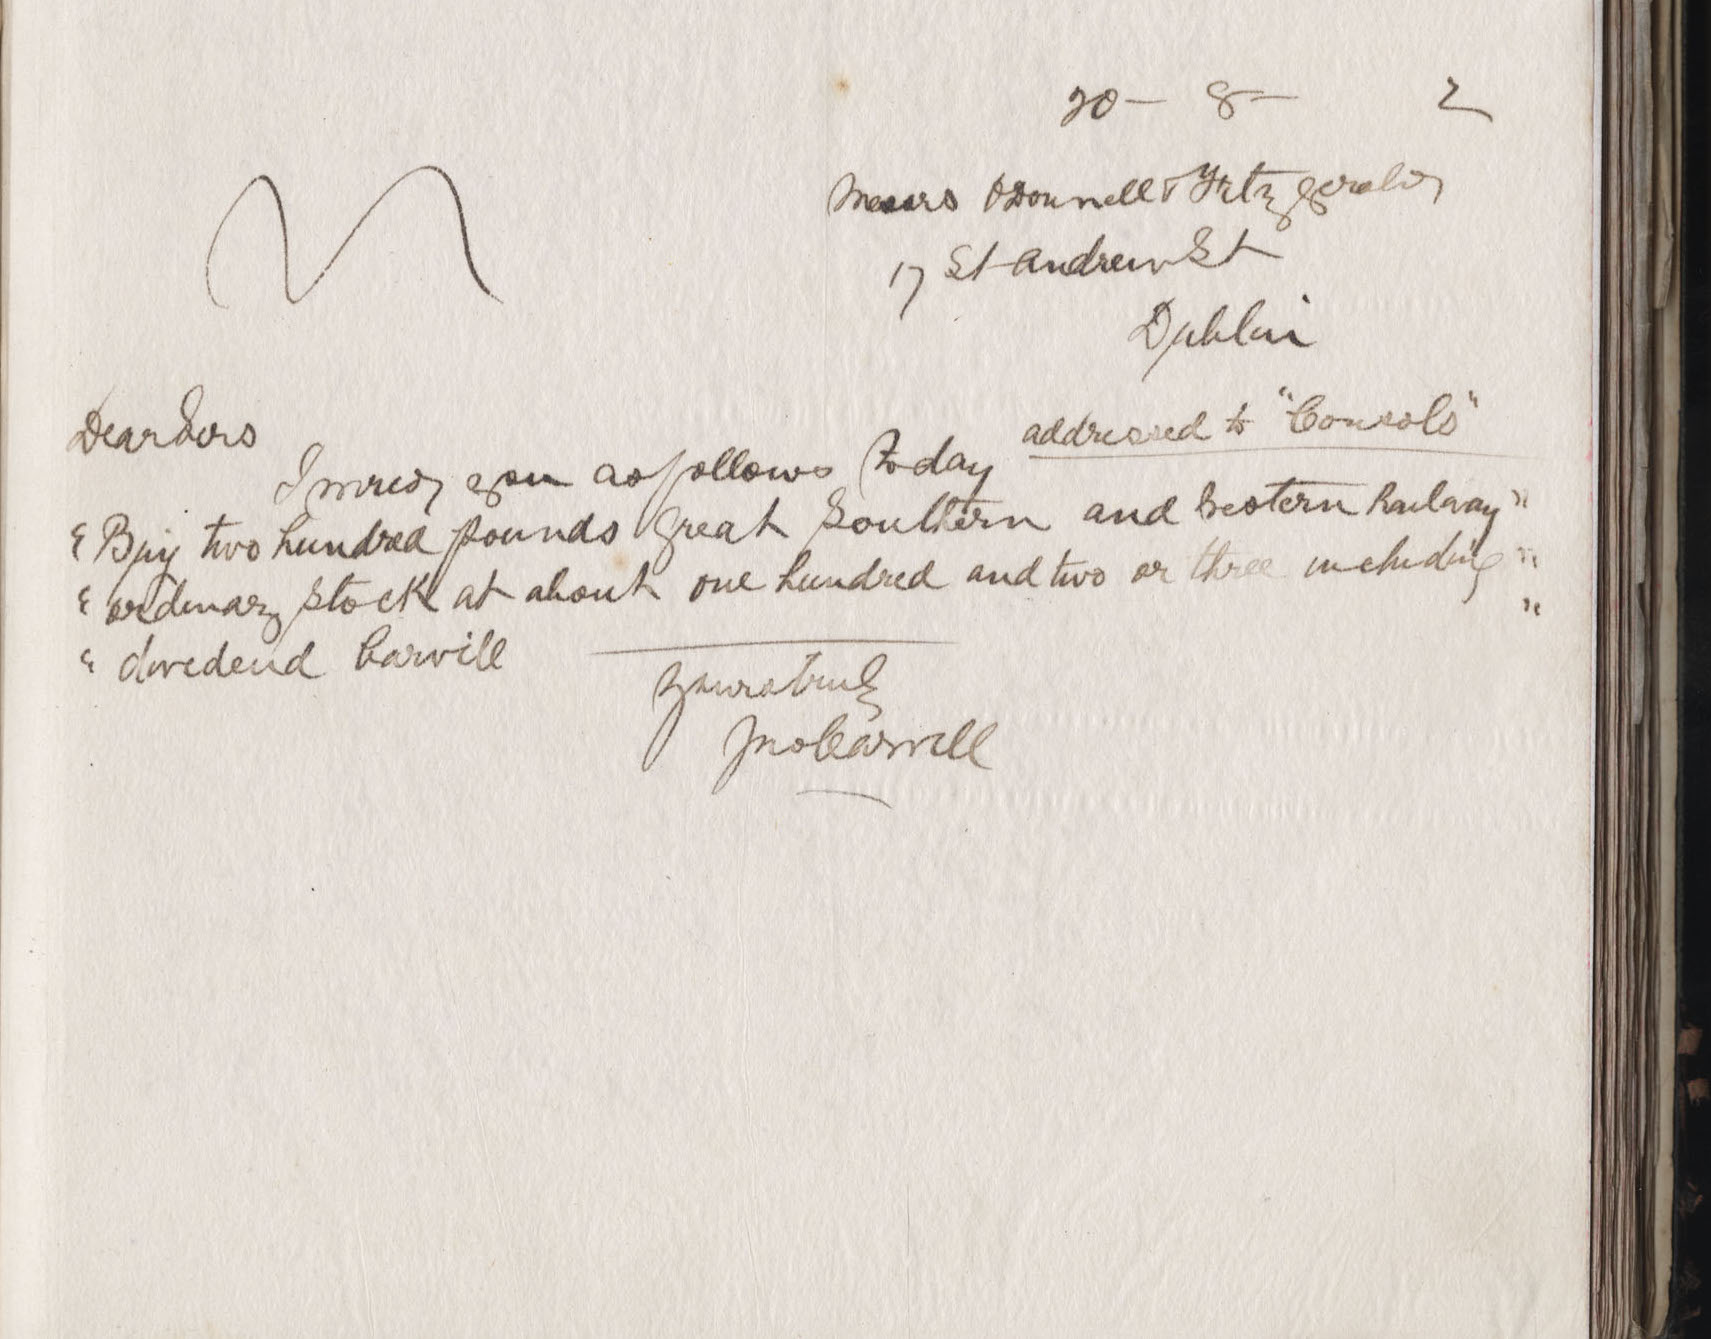 20 - 8 - 2
Messrs O'Donnell & Fitzgerald
17 St Andrew St
Dublin
Dear Sirs
I wired you as follows today addressed to "Consols"
" Buy two hundred pounds Great Southern and Western Railway "
" ordinary stock at about one hundred and two or three including "
" dividend Carvill "
Yours truly
Jno Carvill